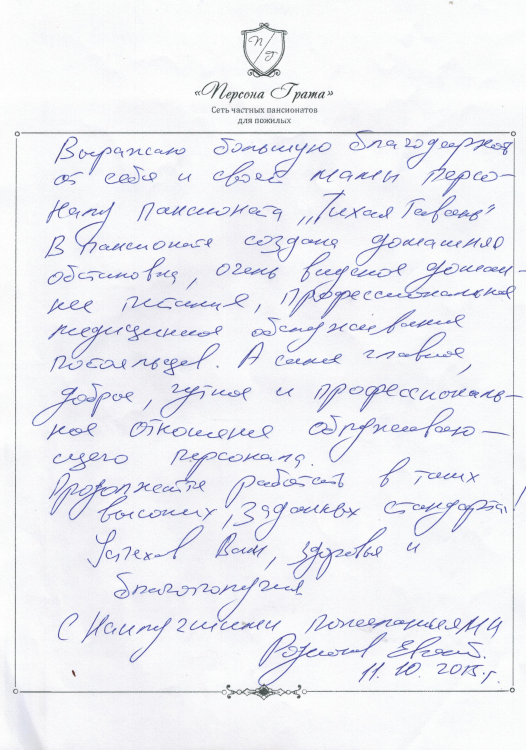 П/Г
«Персона Грата»
Сеть частных пансионатов
для пожилых
Выражаю большую благодарность
от себя и своей мамы персо-
налу пансионата „Тихая Гавань"
В пансионате создана домашняя
обстановка, очень вкусное домаш-
нее питание, профессиональное
медицинское обслуживание
постояльцев. А самое главное,
доброе, чуткое и профессиональ-
ное отношение обслуживаю-
щего персонала.
Продолжайте работать в таких
высоких, заданных стандартах!
Успехов Вам, здоровья и
благополучия
С Наилучшими пожеланиями
11.10.2015г.